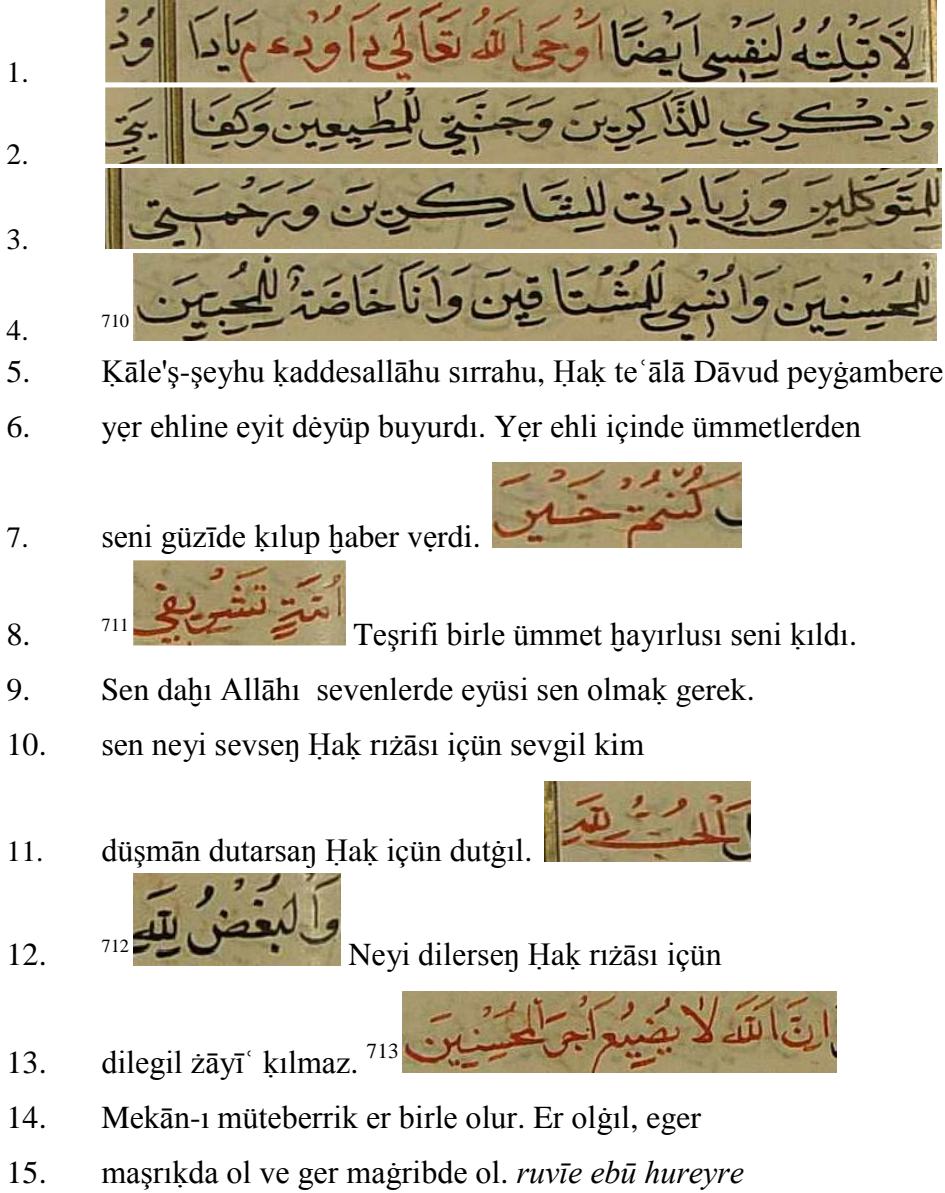 1. لَاَقَبِلْتُهُ لِنَفْسِي اَيْضًا اَوْحَى اللّٰهُ تَعَالَى دَاوُدَ ع م يَادَا وُدُ
2. وَذِكْرِي لِلذَّاكِرِينَ وَجَنَّتِي لِلْمُطِيعِينَ وَكِفَا يَتِي
3. لِلْمُتَوَكِّلِينَ وَزِيَادَتِي لِلشَّاكِرِينَ وَرَحْمَتِي
4. لِلْمُحْسِنِينَ وَاُنْسِي لِلْمُشْتَاقِينَ وَاَنَا خَاصَّةً لِلْمُحِبِّينَ 710
5. Ḳāle'ş-şeyhu ḳaddesallāhu sırrahu, Ḥaḳ teʿālā Dāvud peyġambere
6. yẹr ehline eyit dėyüp buyurdı. Yẹr ehli içinde ümmetlerden
7. seni güzīde ḳılup ḫaber vẹrdi. كُنْتُمْ خَيْرَ
8. 711 اُمَّةٍ تَشْرِيفِي Teşrifi birle ümmet ḫayırlusı seni ḳıldı.
9. Sen daḫı Allāhı sevenlerde eyüsi sen olmaḳ gerek.
10. sen neyi sevseŋ Ḥaḳ rıżāsı içün sevgil kim
11. düşmān dutarsaŋ Ḥaḳ içün dutġıl. اَلْحُبُّ لِلّٰهِ
12. 712 وَالْبُغْضُ لِلّٰهِ Neyi dilerseŋ Ḥaḳ rıżāsı içün
13. dilegil żāyīʿ ḳılmaz. 713 اِنَّ اللّٰهَ لَا يُضِيعُ اَجْرَ الْمُحْسِنِينَ
14. Mekān-ı müteberrik er birle olur. Er olġıl, eger
15. maşrıḳda ol ve ger maġribde ol. ruvīe ebū hureyre